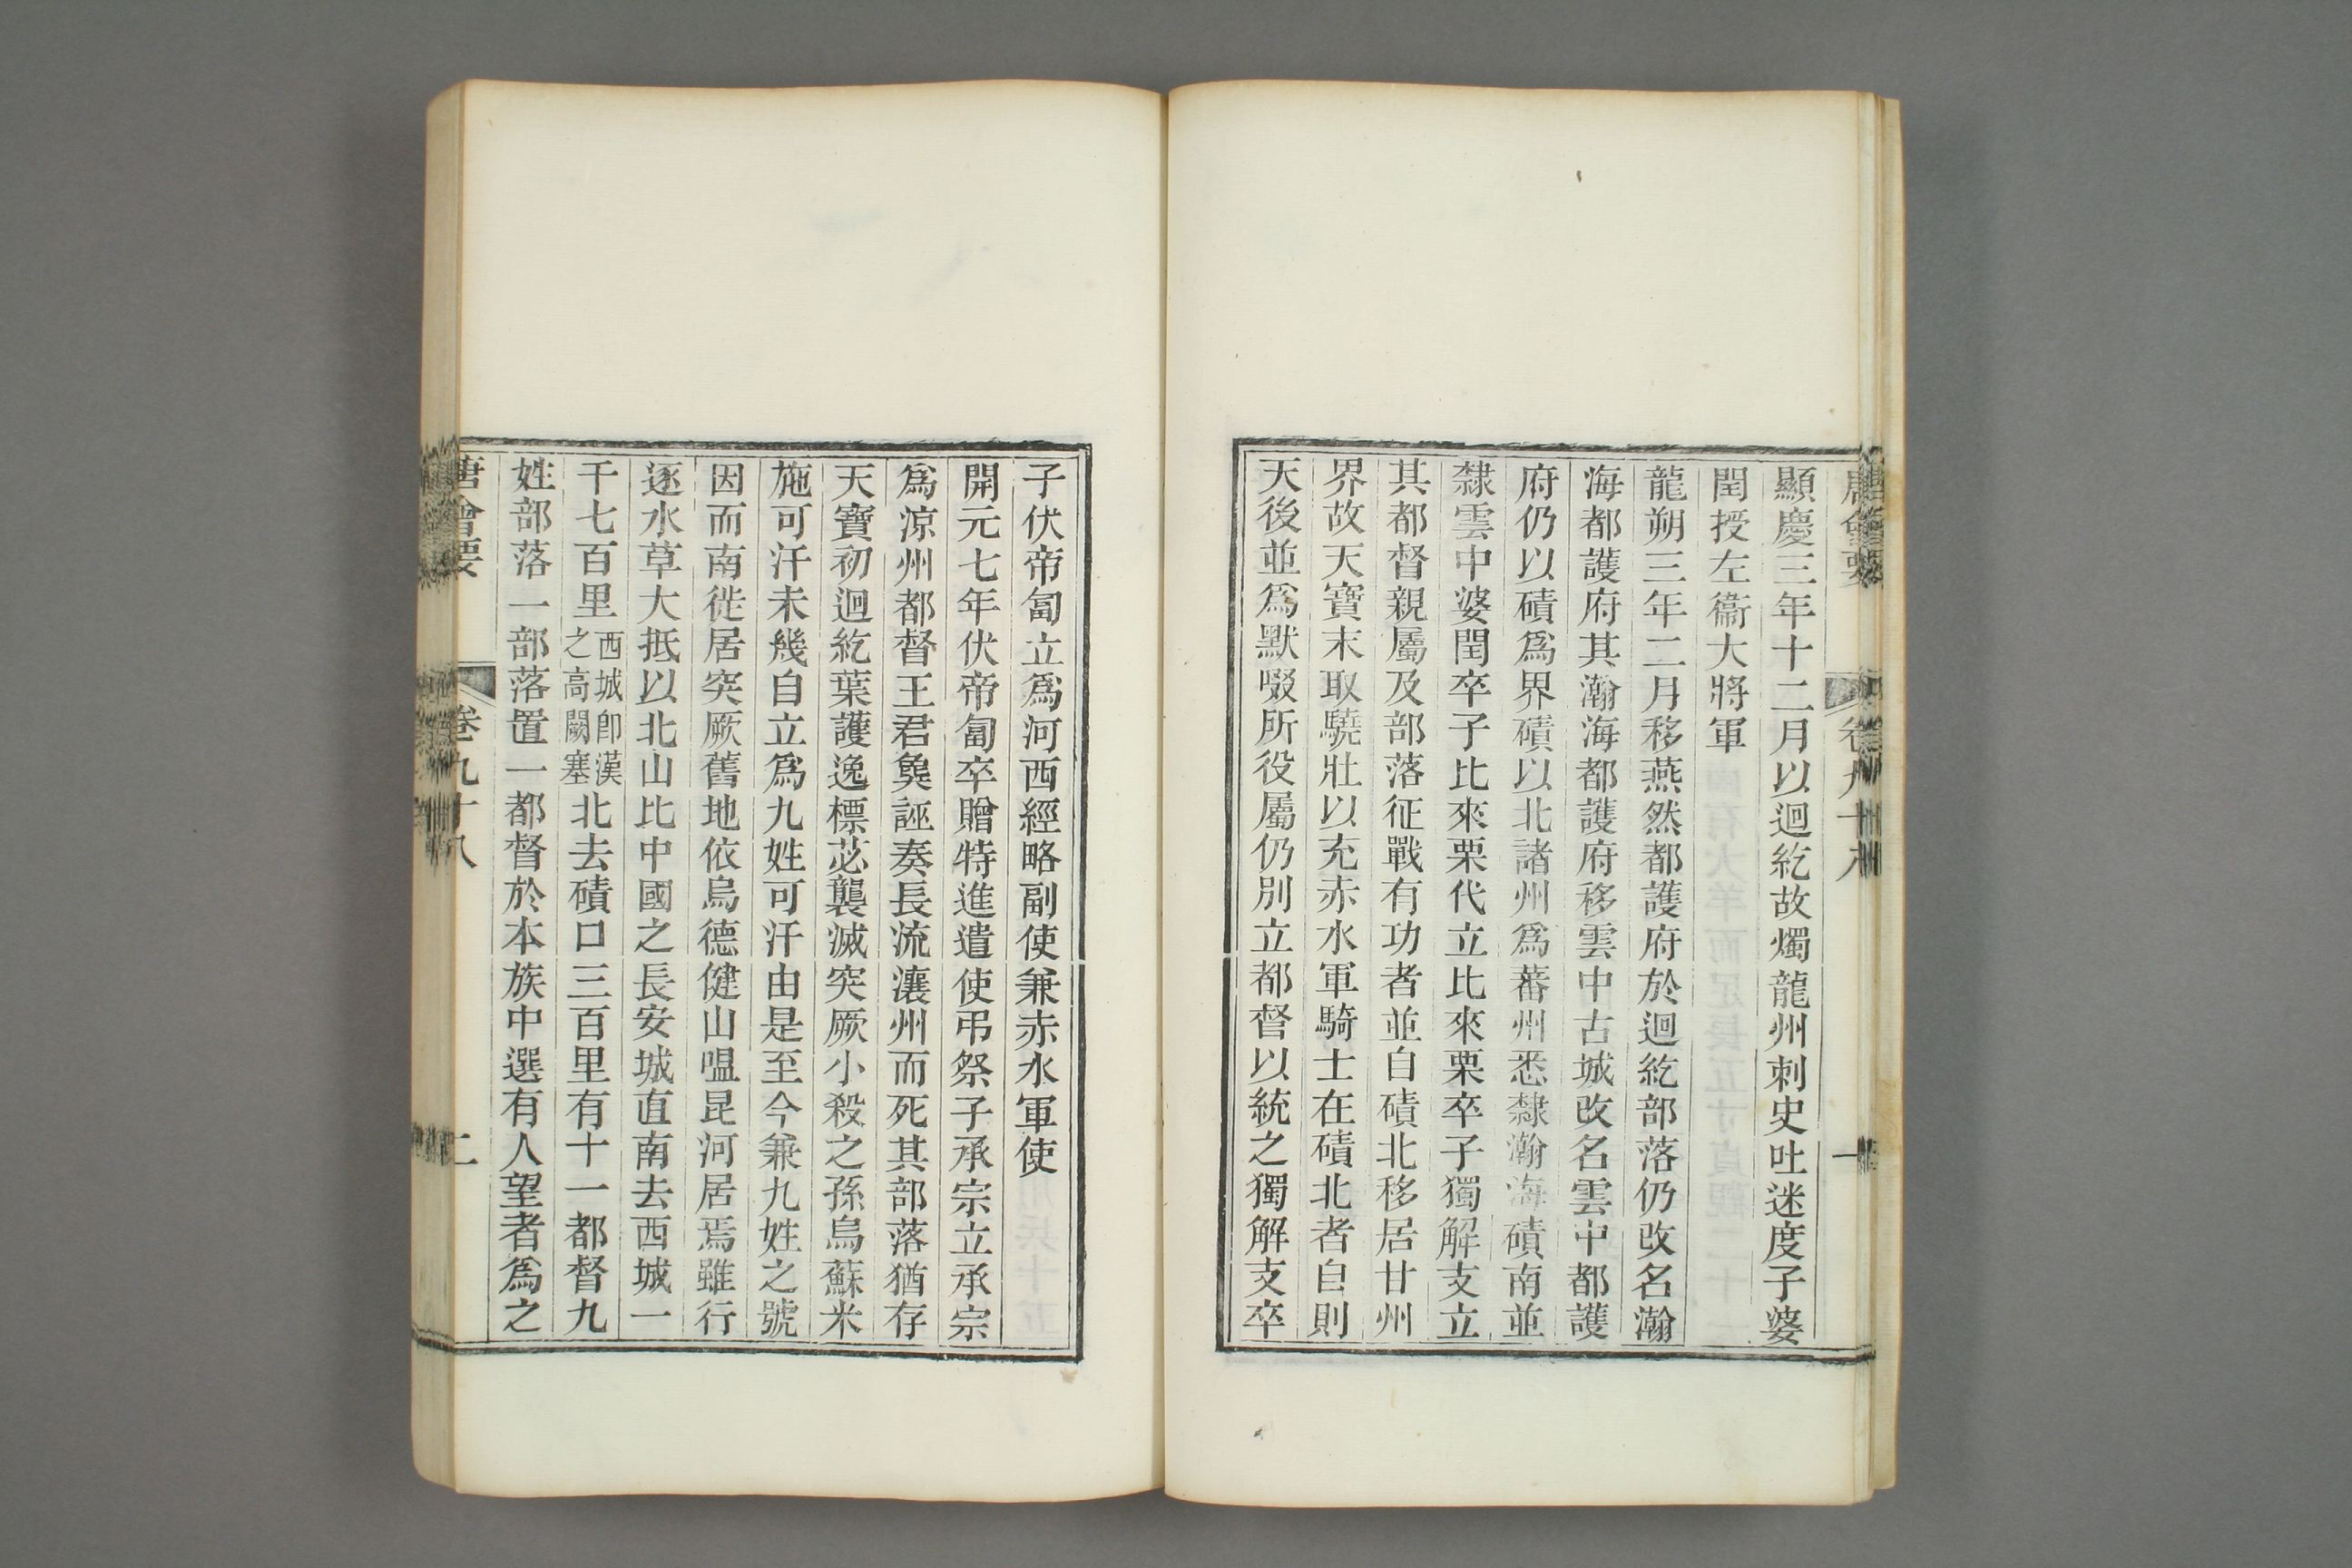 唐會要 卷九十八 一
顯慶三年十二月以迴紇故燭龍州刺史吐迷度子婆
閏授左衞大將軍
龍朔三年二月移燕然都護府於迴紇部落仍改名瀚
海都護府其瀚海都護府移雲中古城改名雲中都護
府仍以磧爲界磧以北諸州爲蕃州悉隸瀚海磧南並
隸雲中婆閏卒子比來栗代立比來栗卒子獨解支立
其都督親屬及部落征戰有功者並自磧北移居甘州
界故天寶末取驍壯以充赤水軍騎士在磧北者自則
天後並爲默啜所役屬仍別立都督以統之獨解支卒
子伏帝匐立爲河西經略副使兼赤水軍使
開元七年伏帝匐卒贈特進遣使弔祭子承宗立承宗
爲涼州都督王君㚟誣奏長流瀼州而死其部落猶存
天寶初迴紇葉護逸標苾襲滅突厥小殺之孫烏蘇米
施可汗未幾自立爲九姓可汗由是至今兼九姓之號
因而南徙居突厥舊地依烏德健山嗢昆河居焉雖行
逐水草大抵以北山比中國之長安城直南去西城一
千七百里西城卽漢之高闕塞北去磧口三百里有十一都督九
姓部落一部落置一都督於本族中選有人望者爲之
唐會要 卷九十八 二